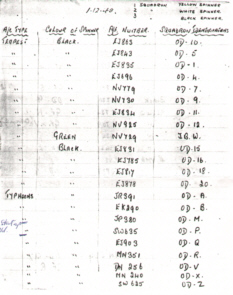 1 SQUADRON YELLOW SPINNER
1-12-44. 2 " WHITE SPINNER
3 " BLACK SPINNER.
A/C TYPE COLOUR OF SPINNER A/C NUMBER SQUADRON
TEMPEST BLACK. EJ893 OD-10.
" " EJ843 OD-5
" " EJ895 OD-1.
" " EJ896 OD-4.
" " NV779 OD-7.
" " NV730 OD-9.
" " EJ894 OD-11.
" " NV925 OD-12.
" GREEN NV729 J.B.W.
" BLACK. EJ891 OD-15
" " EJ785 OD-16.
" " EJ817 OD-18.
" " EJ878 OD-20.
TYPHOONS " SR391 OD-A.
" " EK290 OD-B.
" " JP380 OD-M.
" " SW635 OD-P.
" " EJ903 OD-Q
" " MN351 OD-R.
" " 256 OD-V
" " MN240 OD-X.
" " SW625 OD-Z